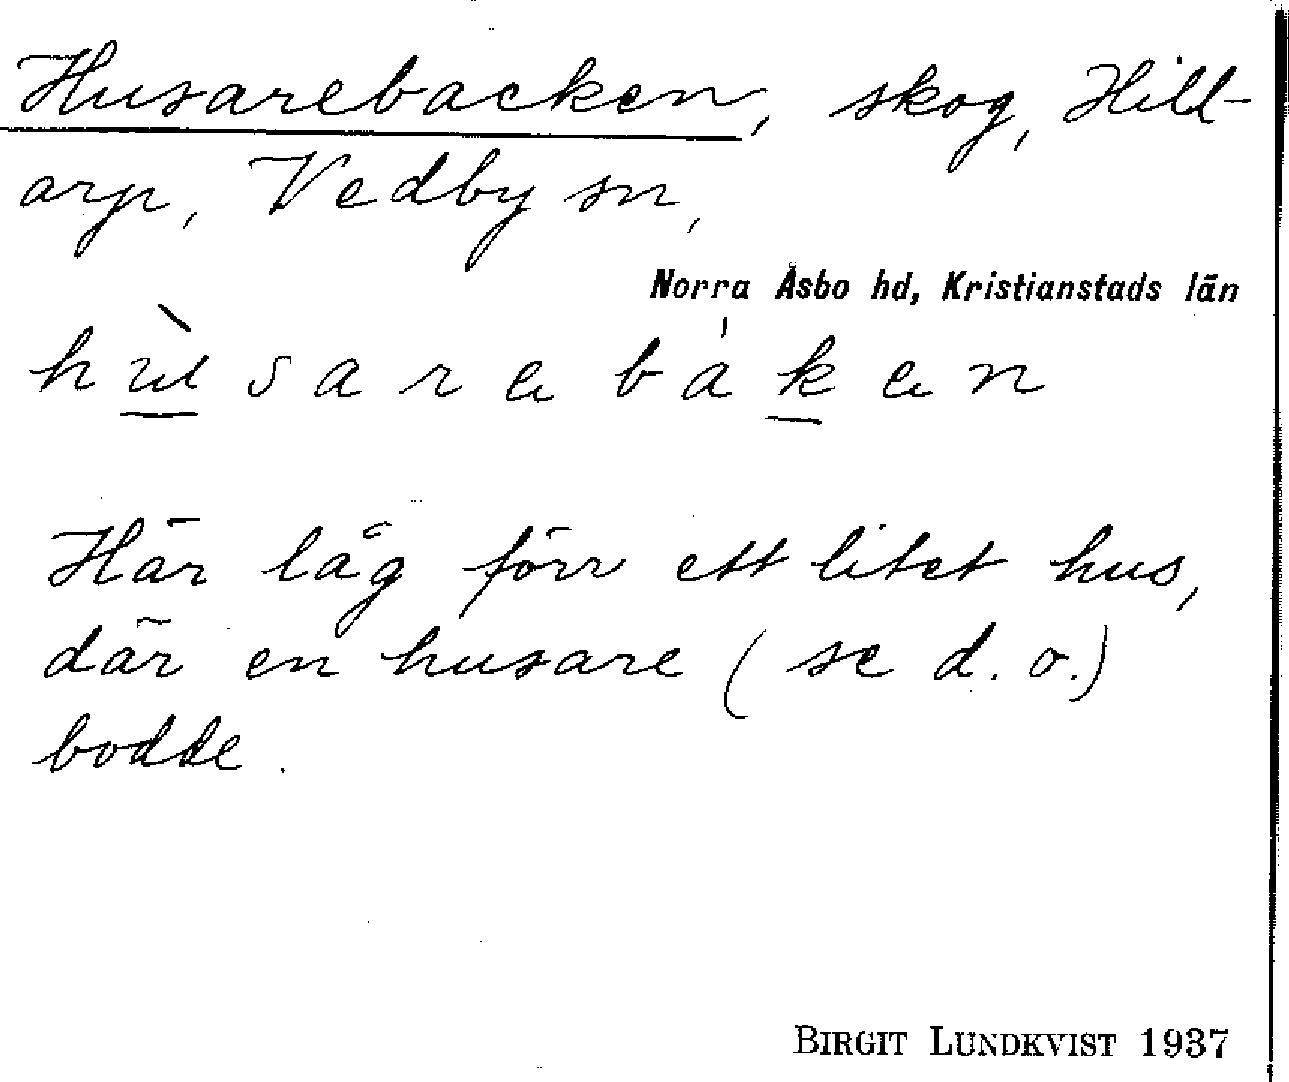 Husarebacken, skog, Hill-
arp, Vedby sn,
Norra Åsbo hd, Kristianstads län
hùsarebáken
Här låg förr ett litet hus,
där en husare (se d. o.)
bodde.
BIRGIT LUNDKVIST 1937